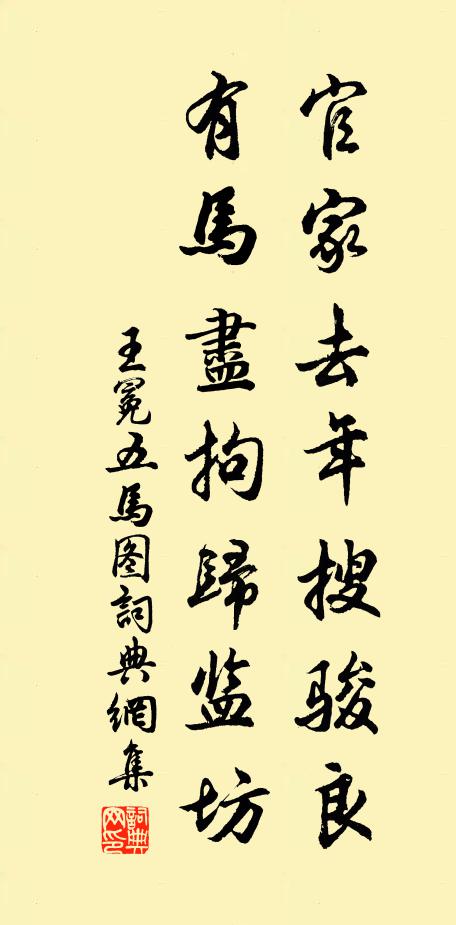 官家去年搜骏良
有馬盡拘歸监坊
王冕五馬图詞典網集
詞典网印